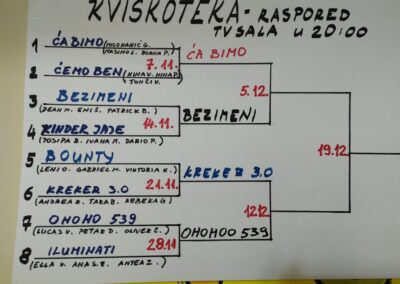 KVISKOTEKA - RASPORED
TV SALA U 20:00
1 ĆA BIMO
ĆA BIMO
7.11.
2 ĆEMO BEN
5.12.
3 BEZIMENI
(DEAN M. ENIŠ. PATRICK B.)
BEZIMENI
14.11.
4 KINDER JAJE
(JOSIPA B. IVANA M. DARIO P.)
19.12.
5 BOUNTY
(LENI O. GABRIEL M. VIKTORIA E.)
KREKER 3.0
21.11.
6 KREKER 3.0
(ANDREA R. TARA B. REBEKA G)
12.12.
7 OHOHO 539
(LUCAS V. PETAR D. OLIVER Č.)
OHOHOO 539
28.11
8 ILUMINATI
(ELLA V. ANA S. B. ANTEA Z.)